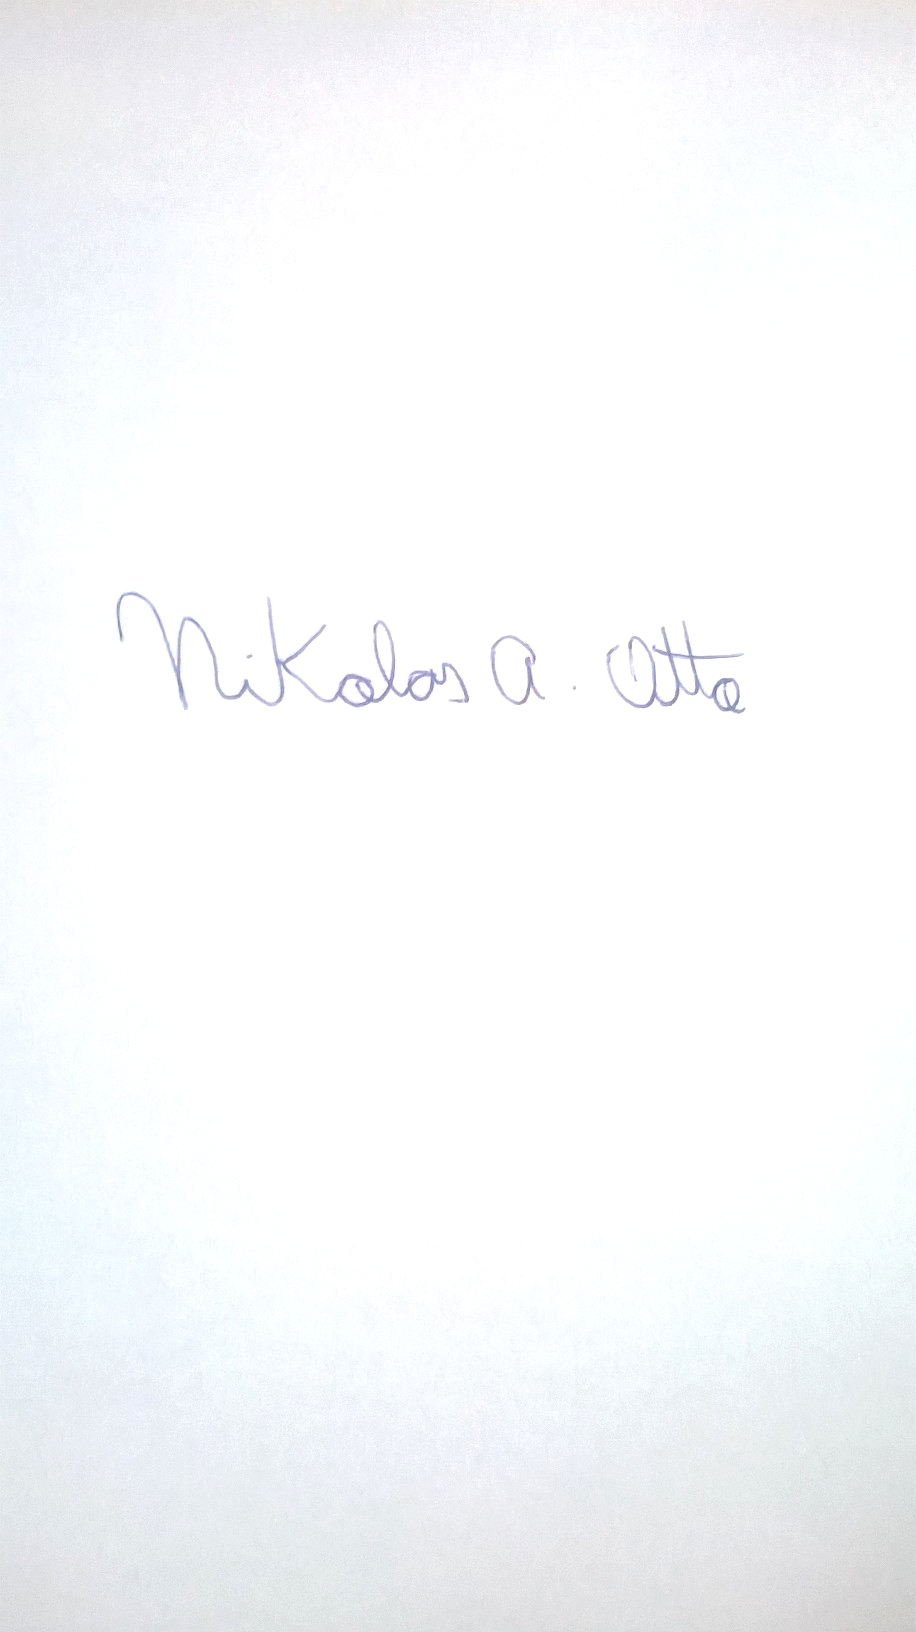 Nikolas A. Otto